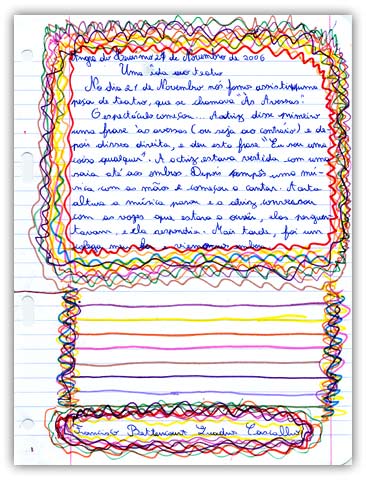 Angra do Heroísmo 27 de Novembro de 2006
Uma ida ao teatro
No dia 21 de Novembro nós fomos assistir uma
peça de teatro, que se chamava "Às Avessas"
O espectáculo começou... A actriz disse primeiro
uma frase às avessas (ou seja ao contrário) e de
pois disse-a direita, e deu esta frase "Eu sou uma
coisa qualquer". A actriz estava vestida com uma
saia até aos ombros. Depois compôs uma mú-
sica com as mãos e começou a cantar. A certa
altura a música parou e a actriz conversou
com as vozes que estava a ouvir, elas pergun
tavam, e ela respondia. Mais tarde, foi um
colega meu
Francisco Bettencourt Quadros Carvalho